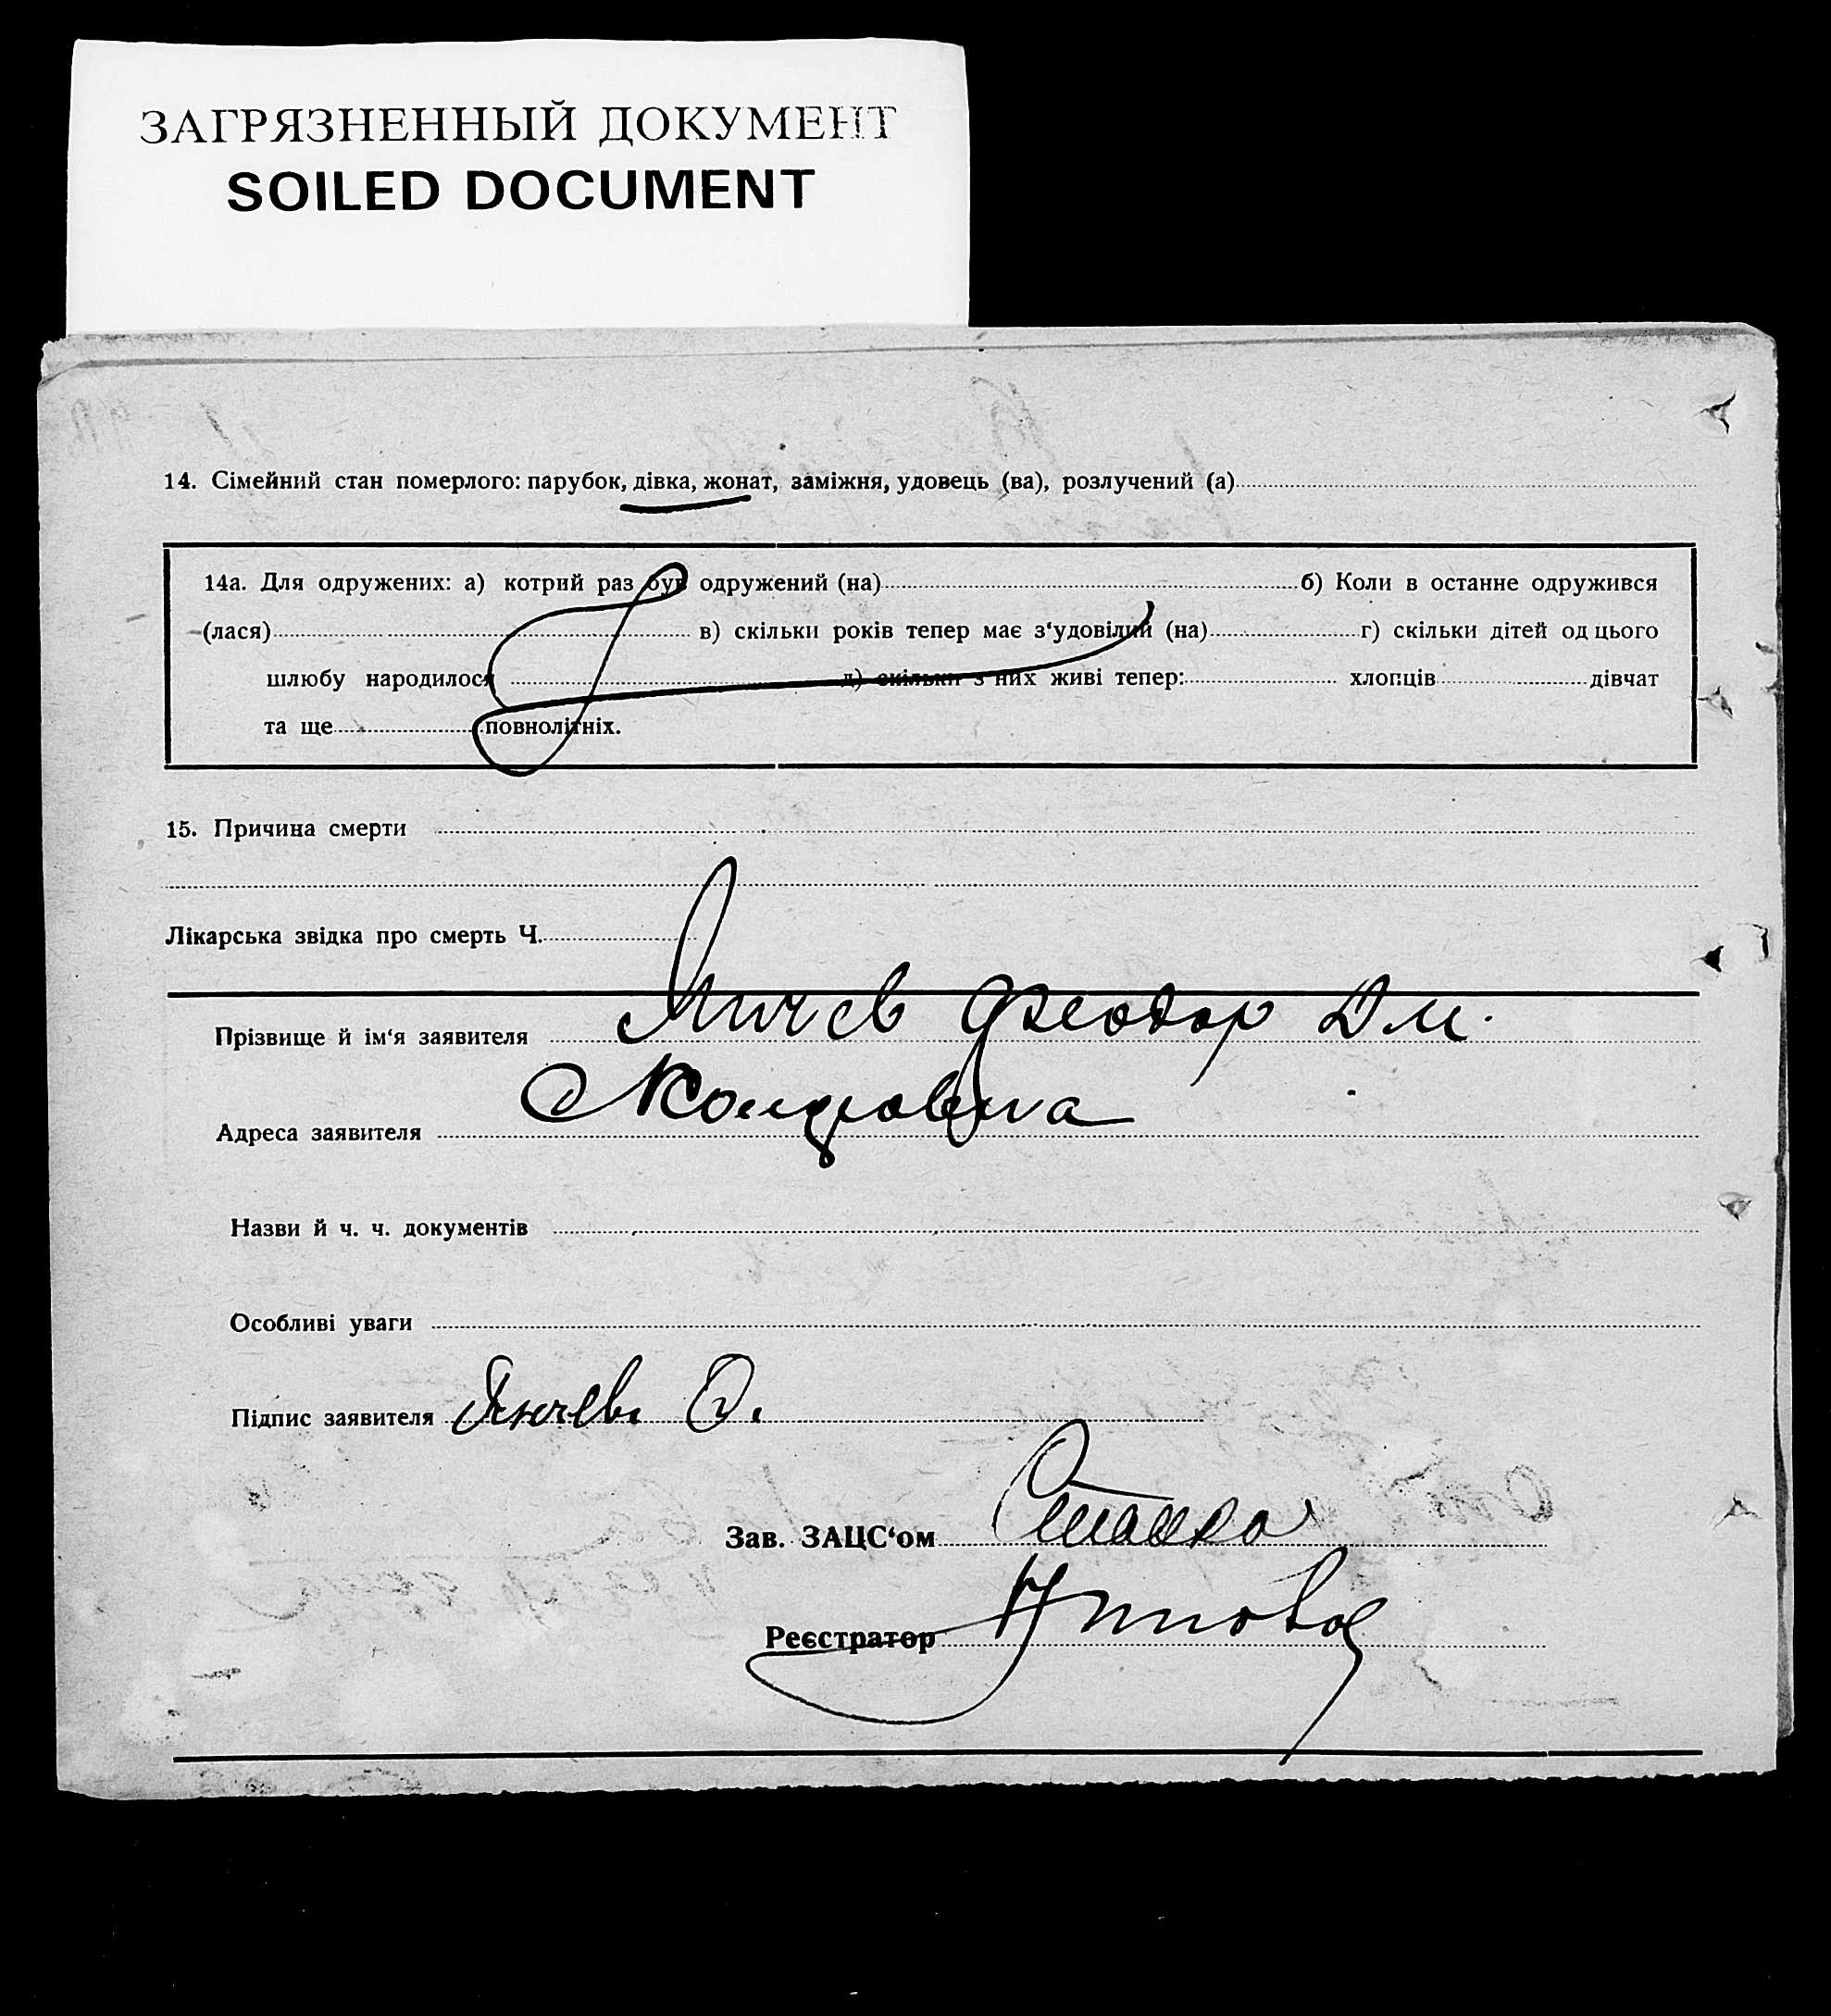 ЗАГРЯЗНЕННЫЙ ДОКУМЕНТ
SOILED DOCUMENT
14. Сімейний стан померлого: парубок, дівка, жонат, заміжня, удовець (ва), розлучений (а)
14а. Для одружених: а) котрий раз був одружений (на) б) Коли в останне одружився
(лася) в) скільки років тепер має з‘удовілий (на) г) скільки дітей од цього
шлюбу народилося д) скільки з них живі тепер: хлопців дівчат
та ще повнолітніх.
15. Причина смерти
Лікарська звідка про смерть Ч.
Прізвище й ім‘я заявителя Янчев Феодор Дм.
Адреса заявителя
Назви й ч. ч. документів
Особливі уваги
Підпис заявителя Янчевъ Ѳ.
Зав. ЗАЦС‘ом
Реєстратор